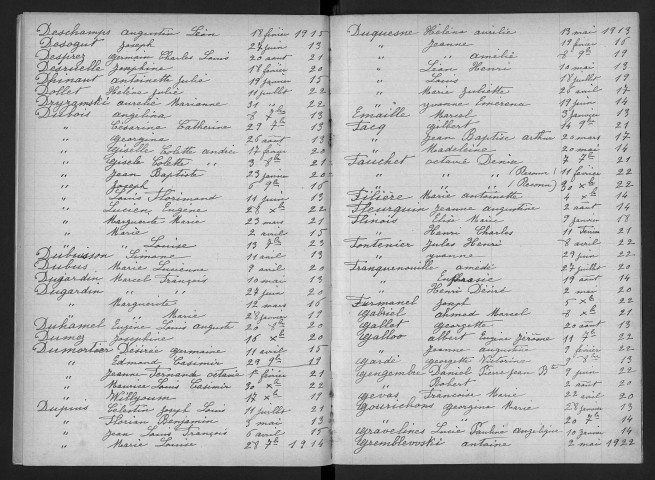 Deschamps Augustin Léon 18 février 1915
Desogut Joseph 27 juin 13
Desprez Germain Charles Louis 20 août 21
Desruelle Joséphine 18 février 20
Dhinaut Antoinette Julie 19 janvier 15
Dollet Hélène Julie 11 juillet 22
Drzyramski Aurélie Marianne 31 " 22
Dubois Angelina 8 7bre 13
" Césarina Catherine 29 7bre 13
" Georgina 26 août 13
" Giselle Colette André 17 février 20
" Gisèle Colette " 3 8bre 21
" Jean Baptiste 23 janvier 20
" Joseph 6 9bre 16
" Louis Florimond 11 janvier 13
" Lucien Eugène 28 Xbre 22
" Marguerite Marie 23 mars 21
" Marie 2 avril 15
" " Louise 13 7bre 23
Dubuisson Simone 11 avril 13
Dubus Marie Lucienne 9 avril 20
Dugardin Marcel François 10 mai 13
Dugardin " 27 juin 20
" Marguerite 12 mars 16
" " Marie 28 janvier 19
Duhamel Eugène Louis Auguste 20 8bre 20
Dumez Joséphine 16 Xbre 20
Dumortier Désirée Germaine 11 avril 15
" Edmond Casimir 29 9bre 13
" Jeanne Fernand Octavie 1er février 21
" Maurice Louis Casimir 30 Xbre 22
" Willyoum 17 Xbre 19
Dupuis Célestin Joseph Louis 11 juillet 21
" Florian Benjamin 3 mai 13
" Jean Louis François 6 avril 15
" Marie Louise 28 7bre 1914
Duquesne Hélèna Aurélie 13 mai 1913
" Jeanne 19 février 16
" " Amélie 8 9bre 19
" Léon Henri 10 mai 13
" Louis 18 juillet 19
" Marie Juliette 26 avril 17
" Yvonne Emerena 19 juin 14
Emaille Marcel 3 janvier 13
Facq Gilbert 14 9bre 21
" Jean Baptiste Arthur 20 mars 17
" Madeleine 20 mai 14
Faischet Octavie Denia 7 7bre 21
" " (Reconn) 11 février 22
" " (Reconn) 30 Xbre 22
Filière Marie Antoinette 4 Xbre 14
Fleurquin Jeanne Augustine 2 août 14
Flinois Elise Marie 9 janvier 18
" Henri Charles 11 février 21
Fontenier Jules Henri 8 avril 22
" Yvonne 29 juin 22
Franquenouille Amédé 27 juillet 20
" Euphrasie 19 août 14
" Henri Désiré 2 mai 20
Furmanel Joseph 5 Xbre 22
Gabriel Ahmed Marcel 8 Xbre 21
Gallet Georgette 20 août 13
Galloo Albert Eugène Jérôme 11 7bre 22
" Jeanne Augustine 9 février 22
Gardé Georgette Victorine 8 13
Gengembre Daniel Pierre Jean Bte 9 juin 22
" Robert 2 août 20
Gevas Francoise Marie 22 avril 20
Gourschons Georgina Marie 28 janvier 13
" 20 7bre 14
Gravelines Lucie Pauline Angélique 10 janvier 14
Gremblevoski Antoine 2 mai 1922